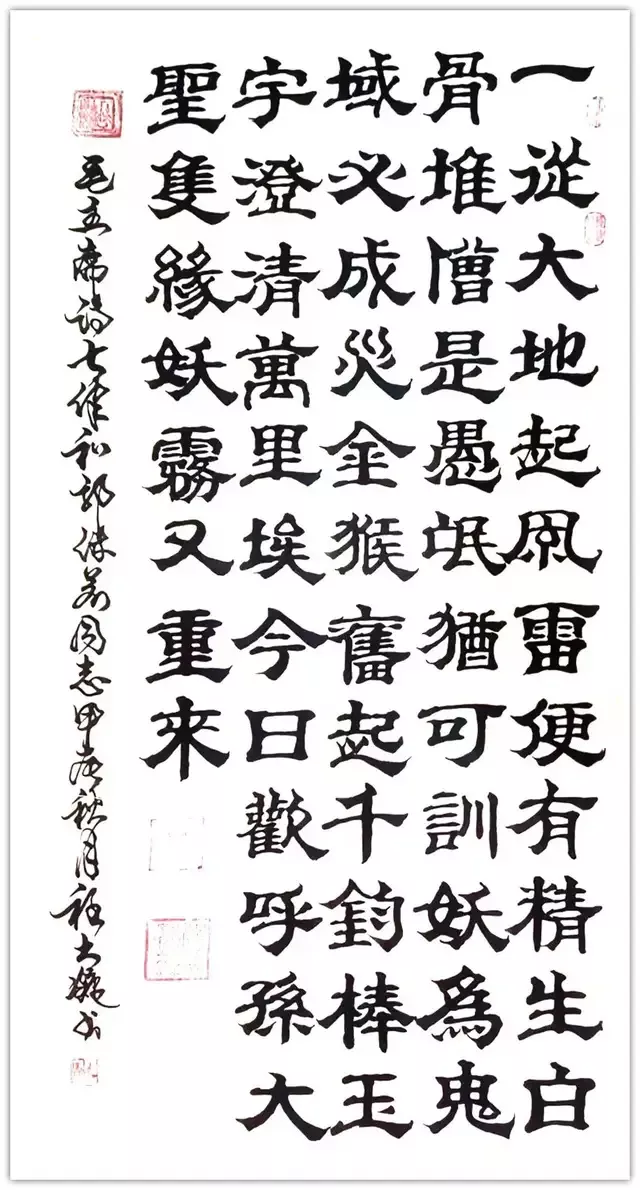 一從大地起風雷便有精生白
骨堆僧是愚氓猶可訓妖為鬼
域必成災金猴奮起千鈞棒玉
宇澄清萬里埃今日歡呼孫大
聖隻緣妖霧又重來
毛主席詩七律和郭沫若同志甲秋月大书